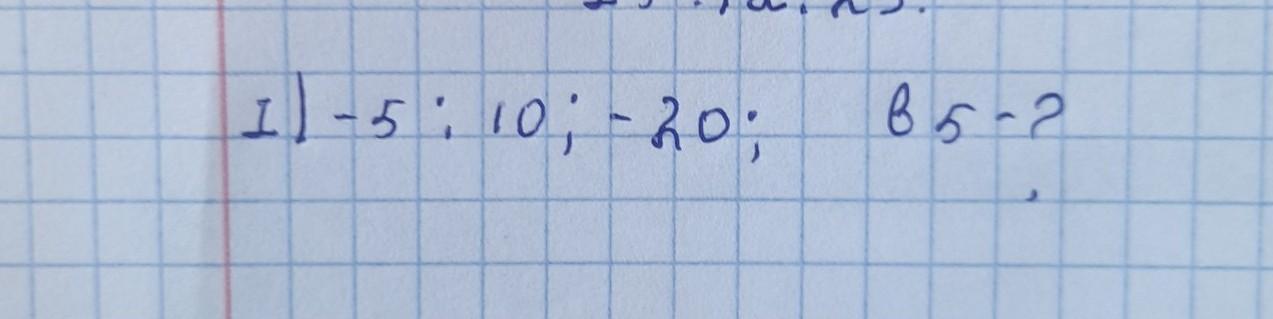 I) -5; 10; -20; b5 - ?